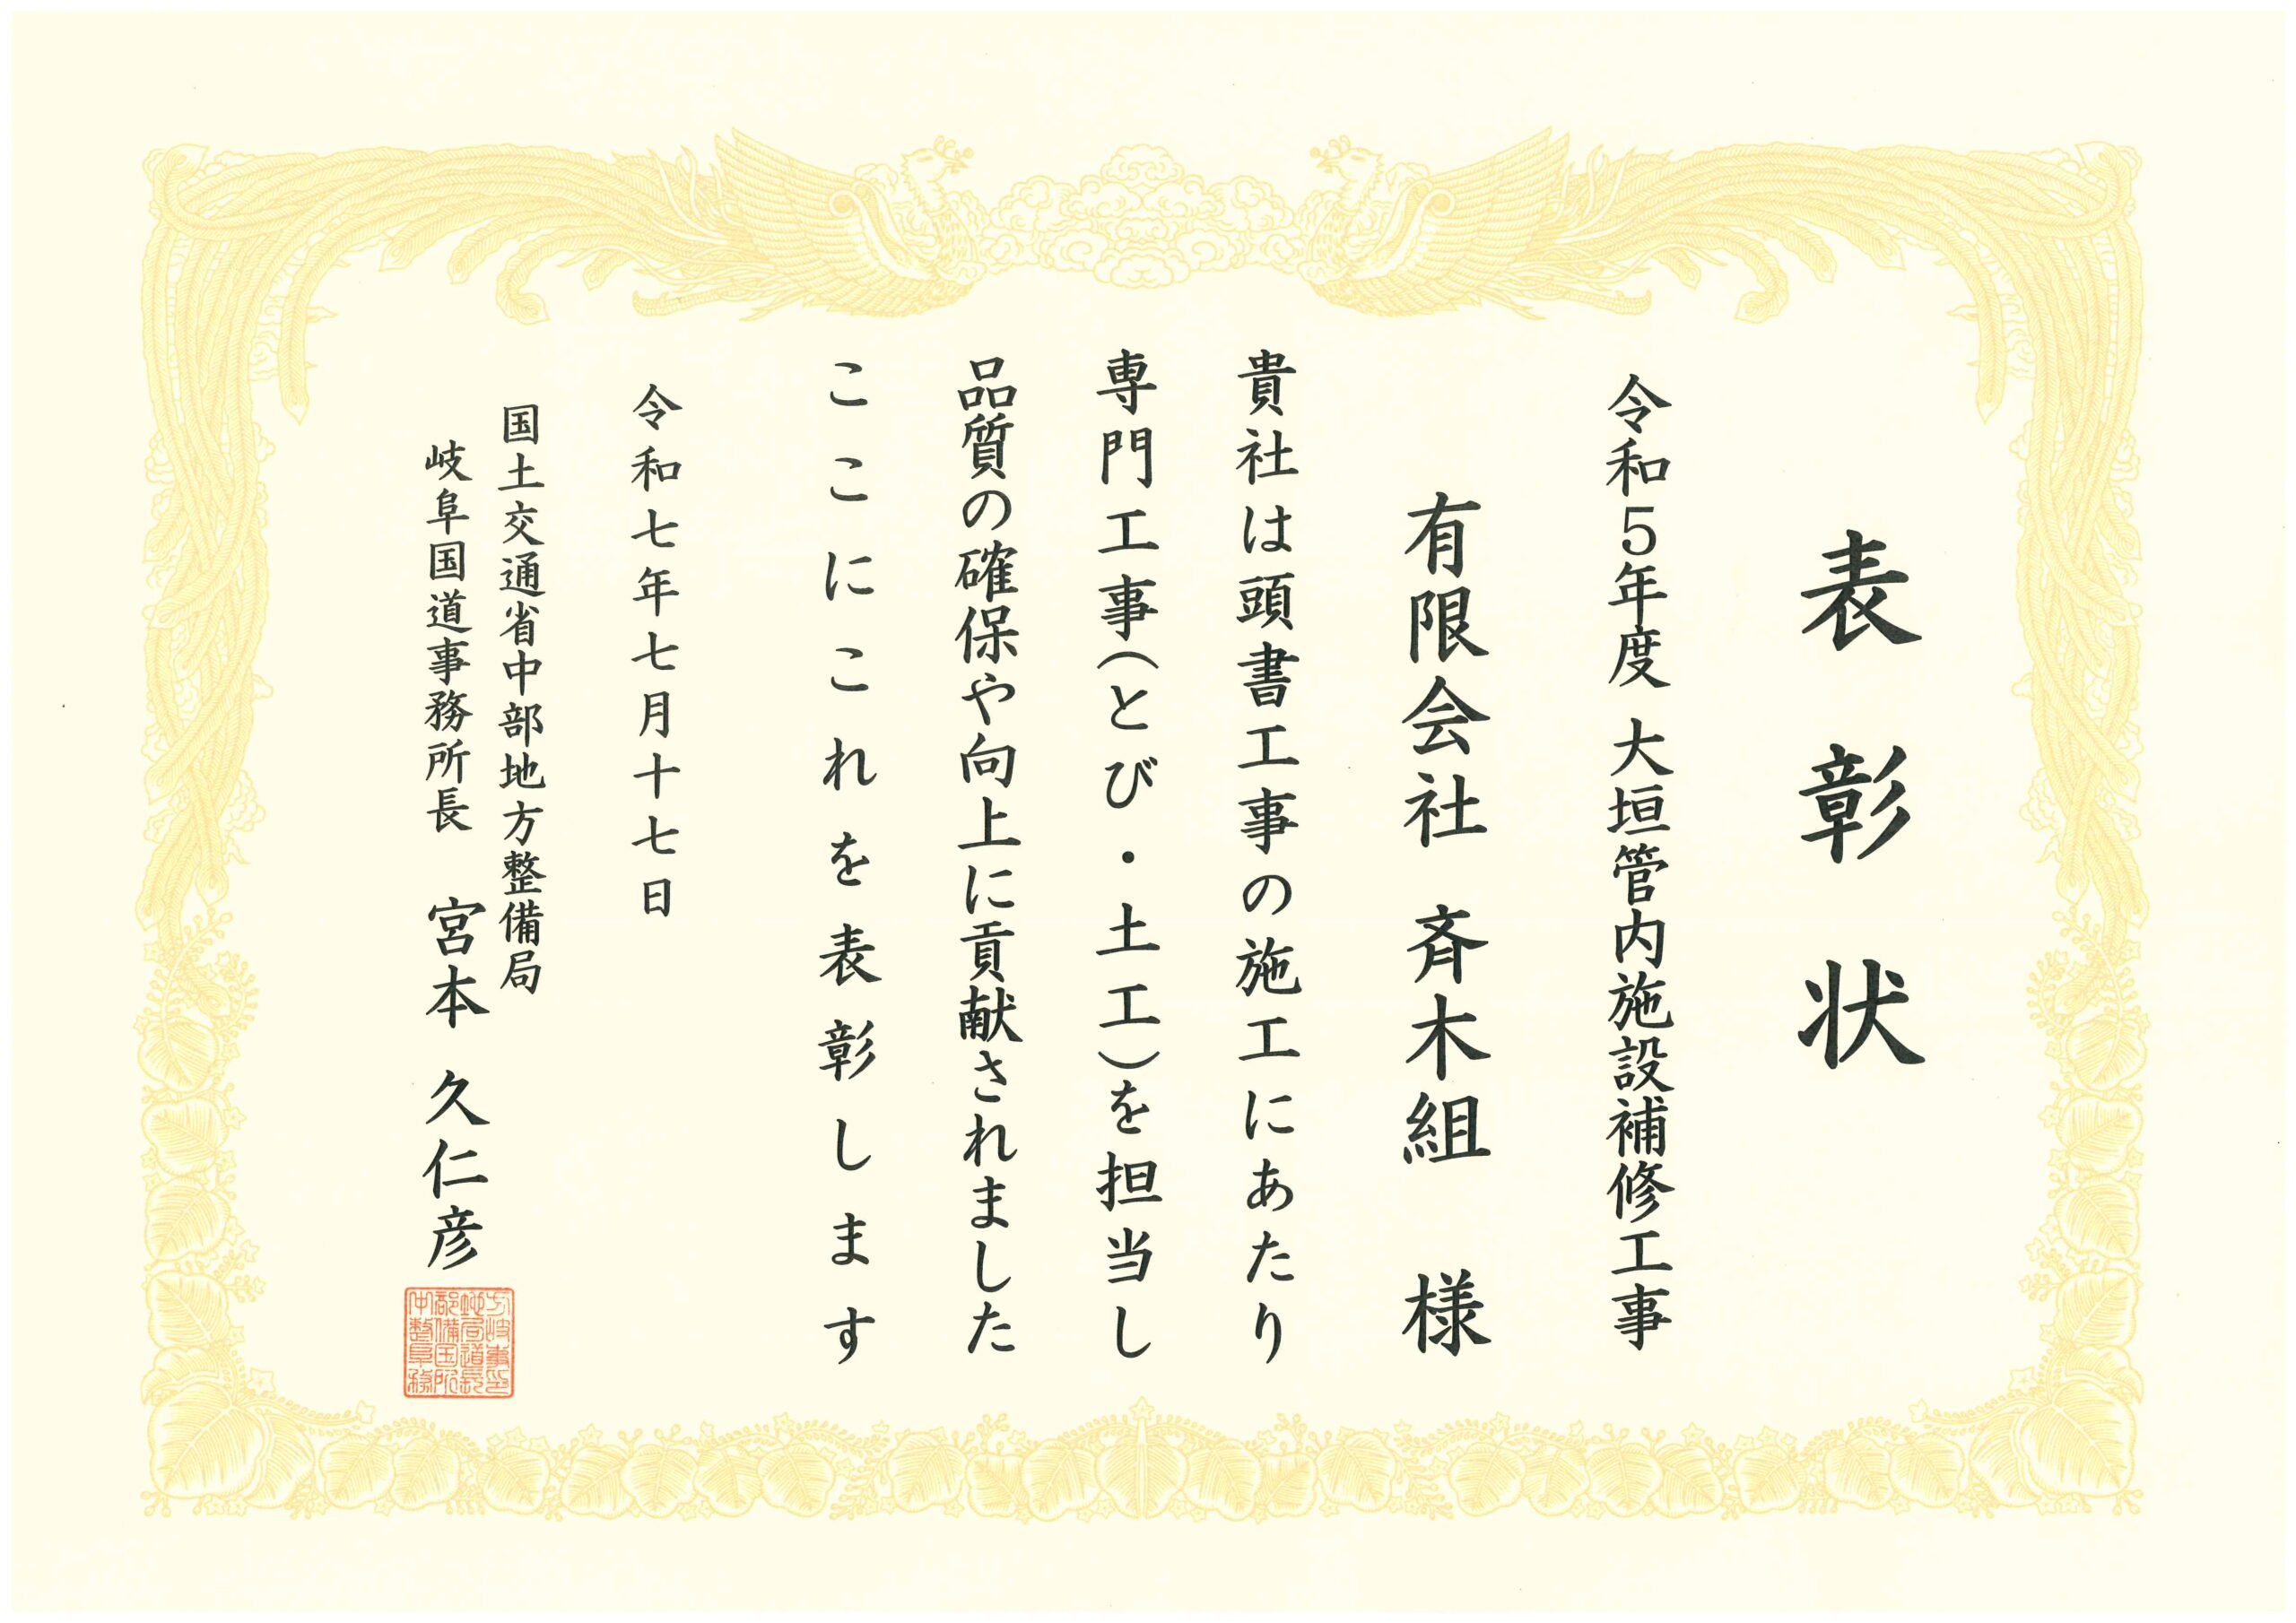 表彰状
令和5年度 大垣管内施設補修工事
有限会社 斉木組 様
貴社は頭書工事の施工にあたり
専門工事(とび・土工)を担当し
品質の確保や向上に貢献されました
ここにこれを表彰します
令和七年七月十七日
国土交通省中部地方整備局
岐阜国道事務所長 宮本 久仁彦
方岐事印
地局道長
部備国所
中整阜務